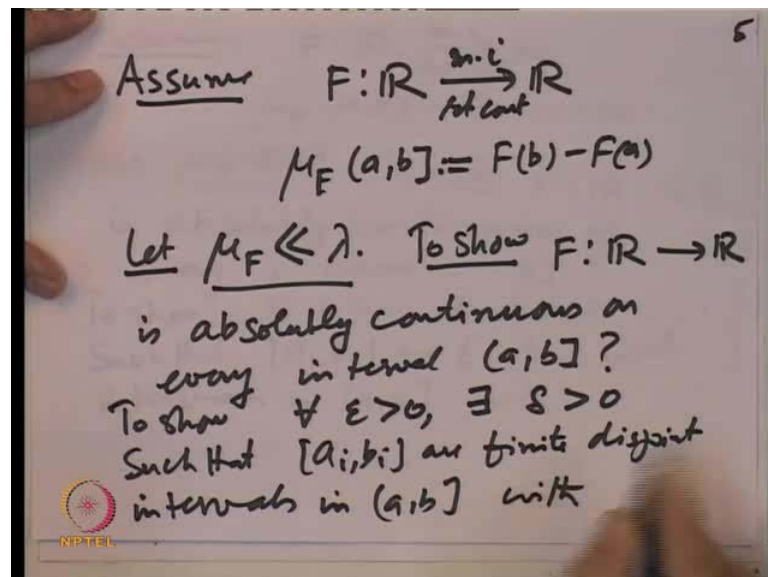 5
Assume F: ℝ → ℝ
m.i
rt cont
μ_F (a,b] := F(b) - F(a)
Let μ_F ≪ λ. To show F: ℝ → ℝ
is absolutely continuous on
every interval (a,b]?
To show ∀ ε > 0, ∃ δ > 0
Such that [a_i, b_i] are finite disjoint
intervals in (a,b] with
NPTEL